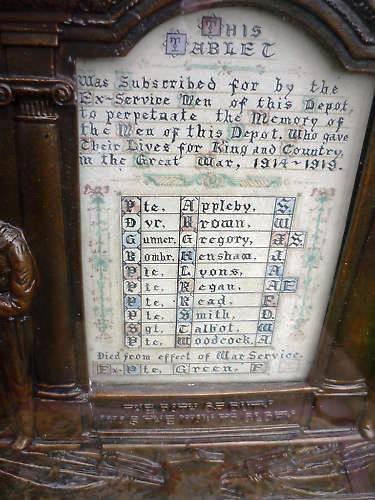 This
Tablet
Was Subscribed for by the
Ex-Service Men of this Depot,
to perpetuate the Memory of
the Men of this Depot, Who gave
Their Lives for King and Country,
in the Great War, 1914-1919.
Pte. Appleby. S
Dvr. Brown. W
Gunner. Gregory. J S
Bombr. Henshaw. J.
Pte. Lyons. A
Pte. Regan. A E
Pte. Read. F.
Pte. Smith. D.
Sgt. Talbot. W
Pte. Woodcock. A
Died from effect of War Service.
Ex-Pte. Green. F